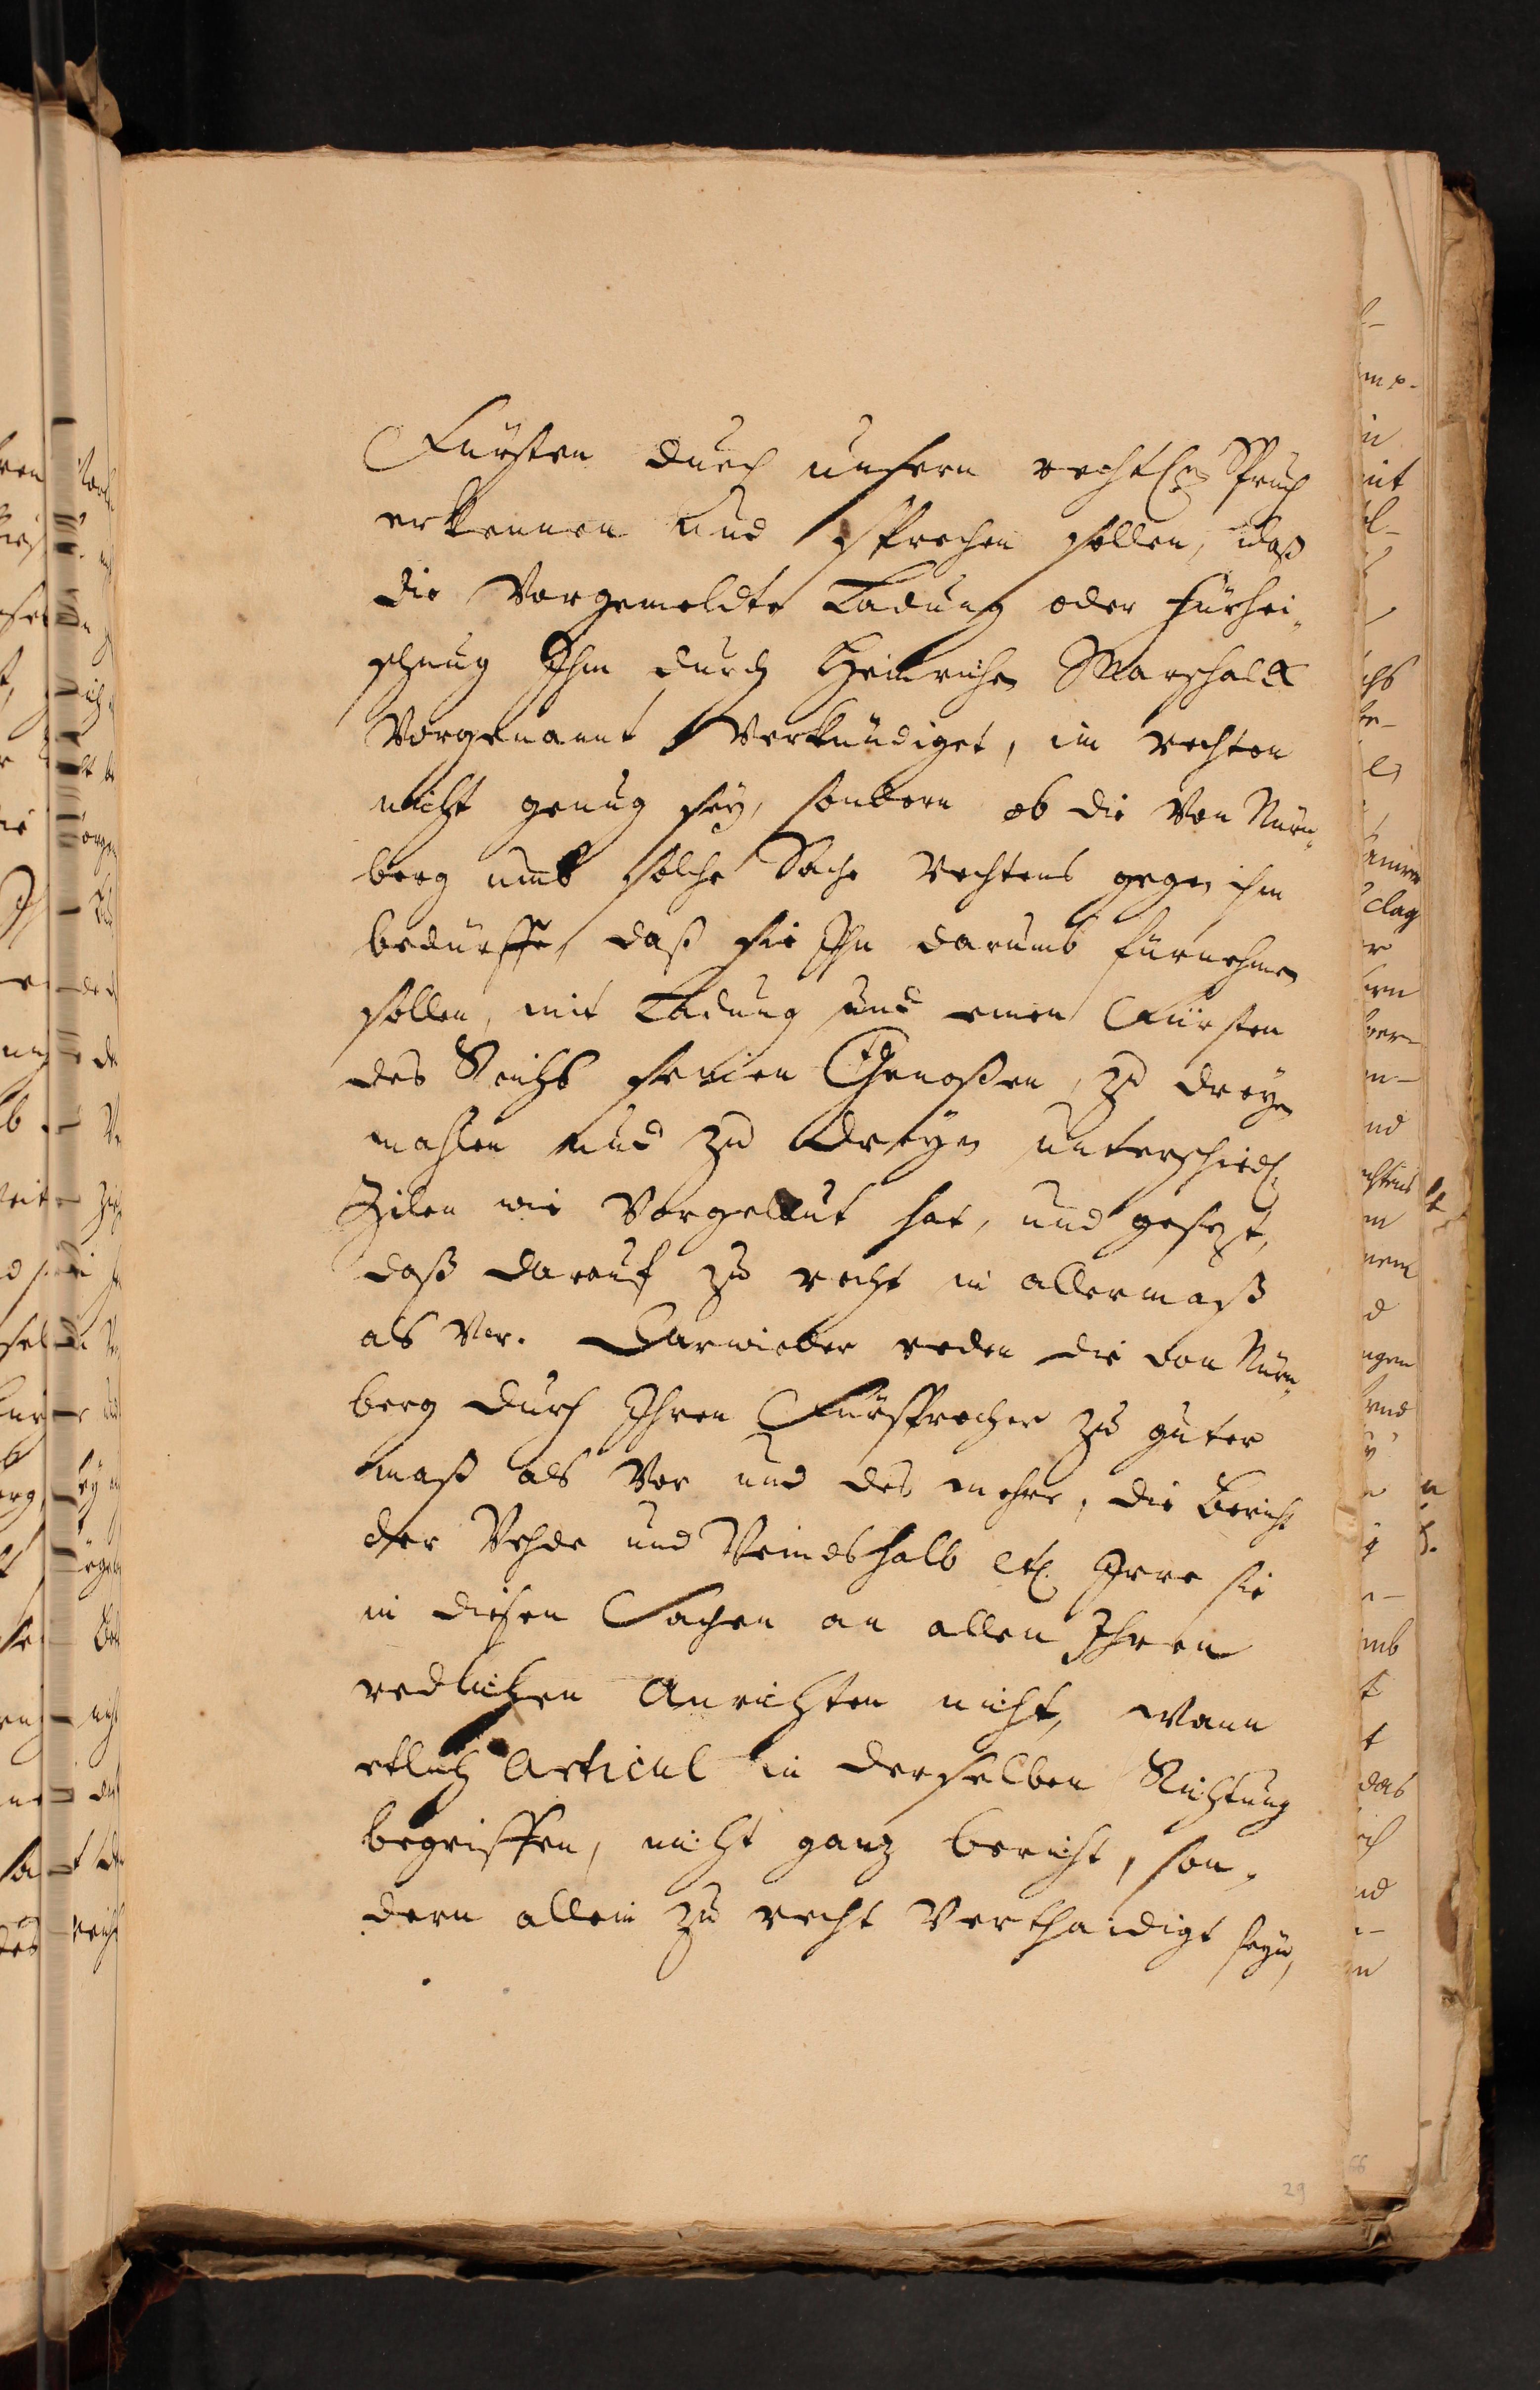 Fürsten durch unsern rechtl. Spruch
erkennen und sprechen sollen, daß
die Vorgemeldte Ladung oder fürhei-
schung Ihm durch Heinrichen Marschalk
Vorgenannt Verkündiget, im rechten
nicht genug sey, sondern ob die Von Nürn-
berg umb solche Sache Rechtens gegen ihm
bedürffe, daß sie Ihn darumb fürnehmen
sollen, mit Ladung und einen Fürsten
des Reichs seinen Genoßen, zu dreyen
mahlen und zu dreyen unterschiedl.
Zilen wie Vorgelaut hat, und gesezt,
daß darauf zu recht in allermaß
als Vor. Darwieder reden die von Nürn-
berg durch Ihren Fürsprechen zu guter
maß als Vor und des mehre, die Bericht
der Vehde und Veindshalb etc. Irre sie
in diesen Sachen an allen Ihren
redlichen Anrichten nicht, Wann
etlich Articul in derselben Richtung
begriffen, nicht ganz bericht, son-
dern allein zu recht Verthaidigt seyn,
29
66